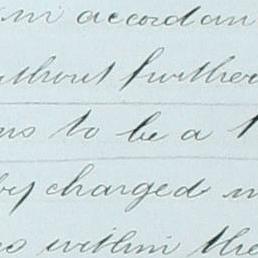 in accordan
without further
ns to be a
by charged
s within the